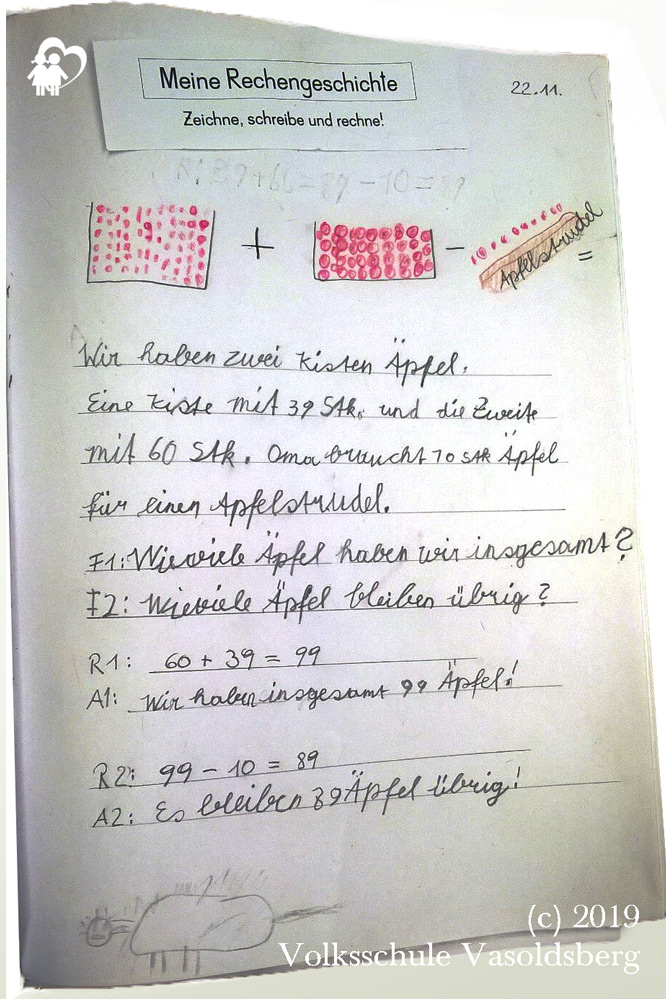 Meine Rechengeschichte
Zeichne, schreibe und rechne!
22.11.
R: 39+60=89-10=89
+ - Apfelstrudel =
Wir haben zwei Kisten Äpfel.
Eine Kiste mit 39 Stk. und die Zweite
mit 60 Stk. Oma braucht 10 stk Äpfel
für einen Apfelstrudel.
F1: Wieviele Äpfel haben wir insgesamt?
F2: Wieviele Äpfel bleiben übrig?
R1: 60 + 39 = 99
A1: Wir haben insgesamt 99 Äpfel!
R2: 99 - 10 = 89
A2: Es bleiben 89 Äpfel übrig!
(c) 2019
Volksschule Vasoldsberg